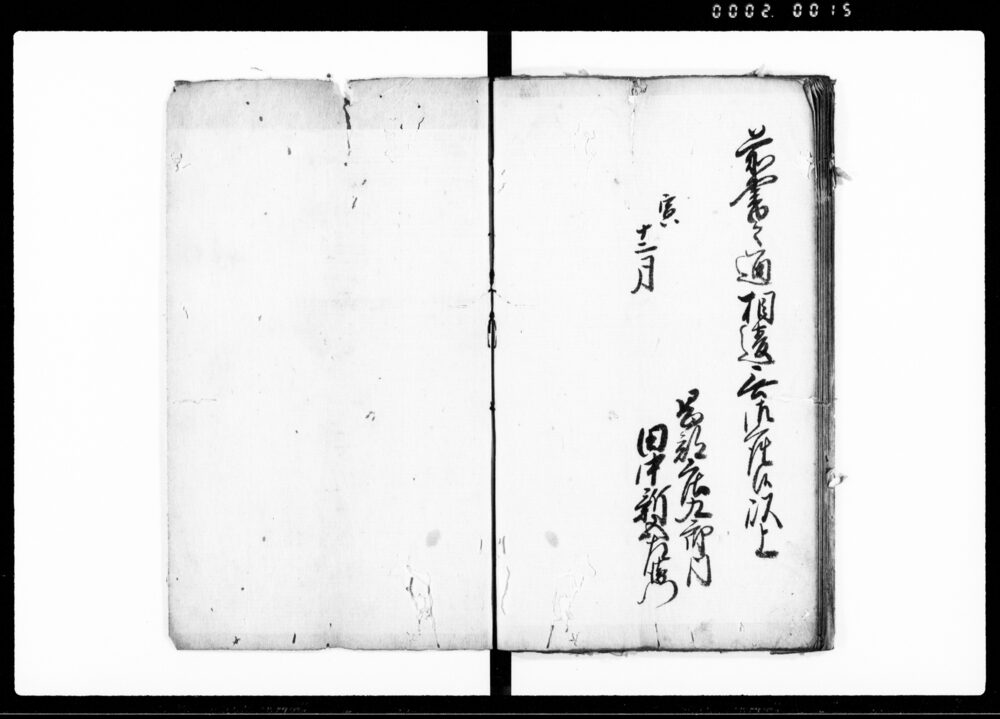 0002. 0015
前書之通相違無御座候以上
寅
十二月
田中新五左衛門